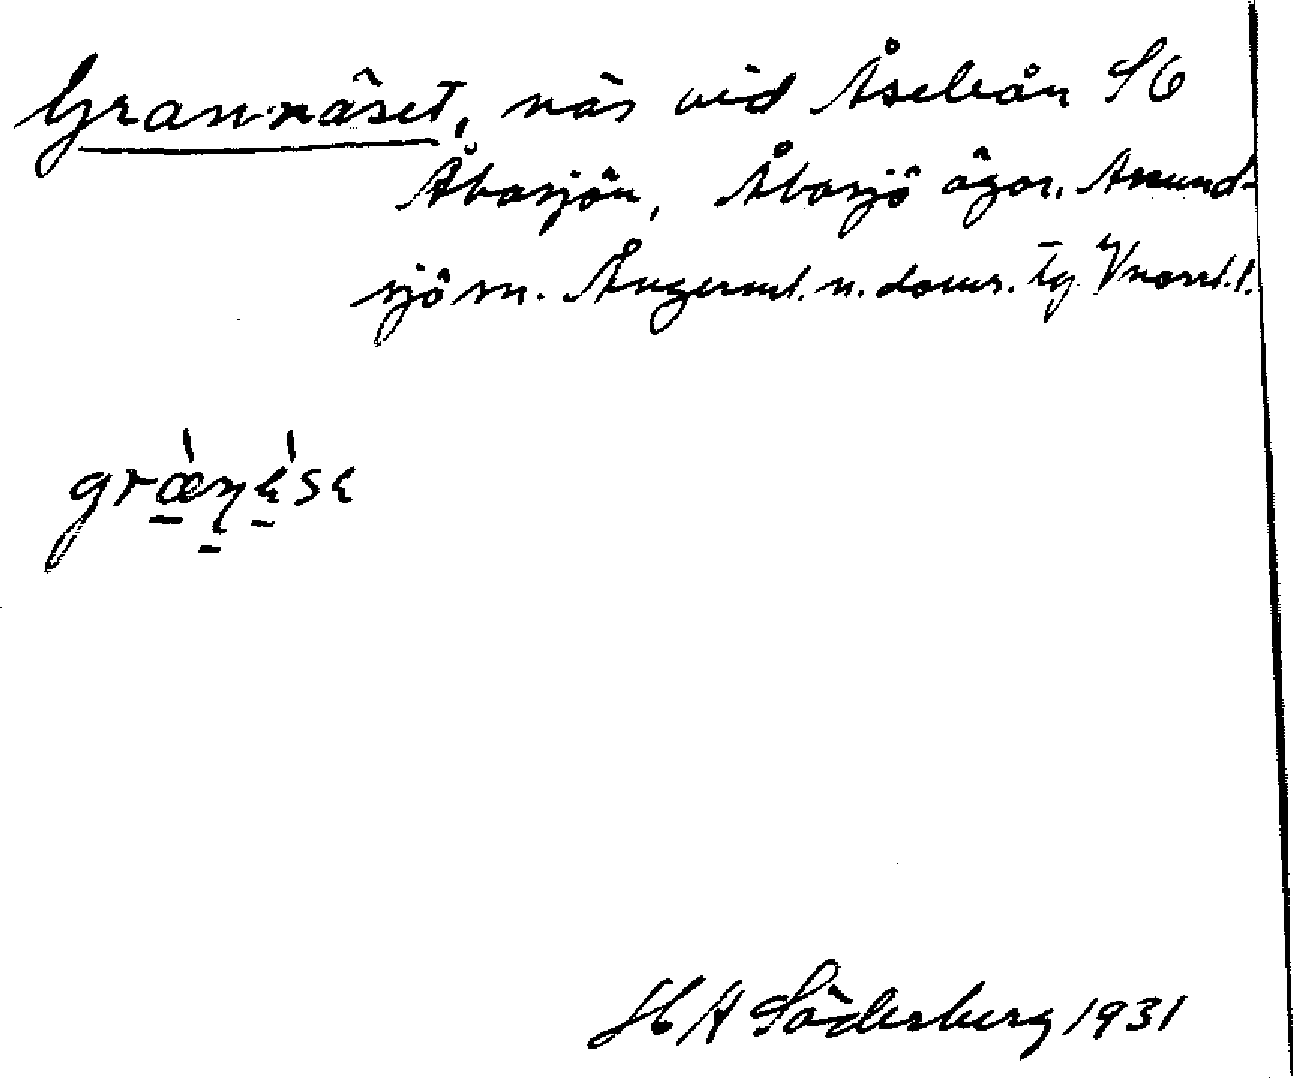 Grannäset, näs vid Åseleån SO
Åbosjön, Åbosjö ägor, Anund-
sjö sn. Ångerml. n. doms. tg. Vnorrl. l.
græ̀ṇɛ́sɛ
H A Söderberg 1931